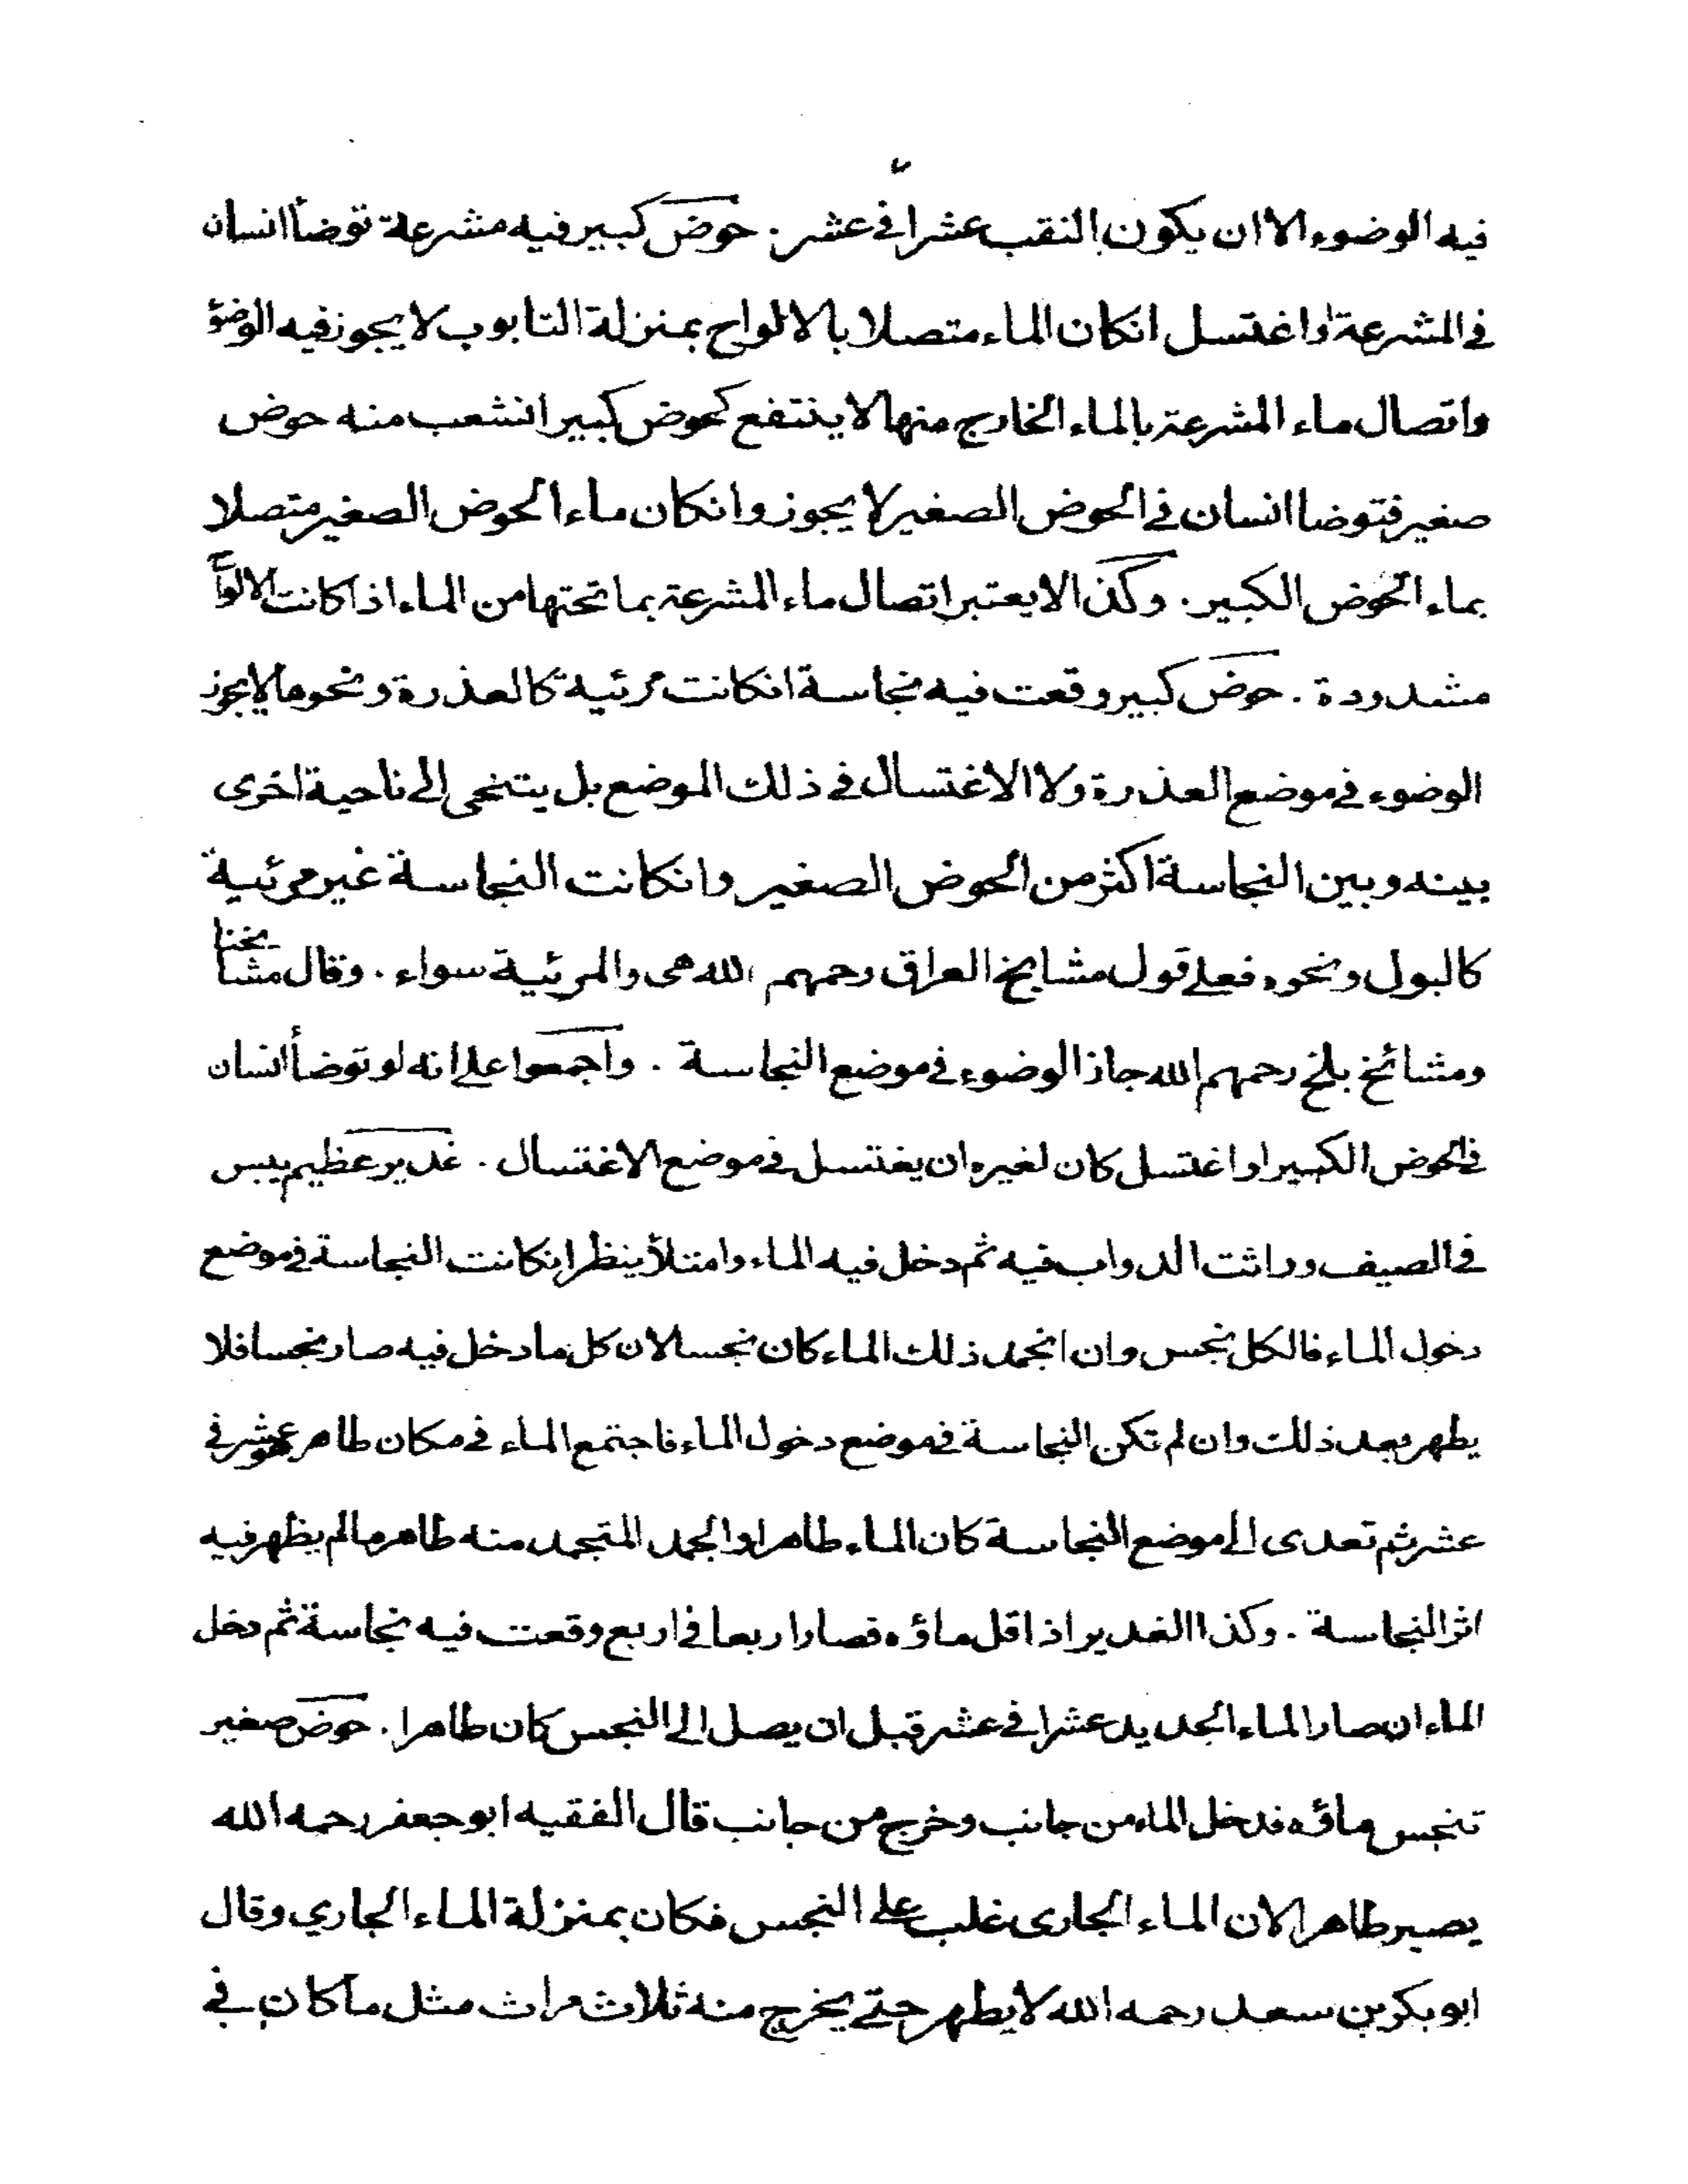 فيه الوضوء الا ان يكون النقب عشرا في عشر . حوض كبير فيه مشرعة توضأ انسان
في المشرعة او اغتسل انكان الماء متصلا بالالواح بمنزلة التابوب لا يجوز فيه الوضؤ
واتصال ماء المشرعة بالماء الخارج منها لا ينتفع كحوض كبير انشعب منه حوض
صغير فتوضا انسان في الحوض الصغير لا يجوز وانكان ماء الحوض الصغير متصلا
بماء الحوض الكبير . وكذا لا يعتبر اتصال ماء المشرعة بما تحتها من الماء اذا كانت الالواح
مشدودة . حوض كبير وقعت فيه نجاسة انكانت مرئية كالعذرة ونحوها لا يجوز
الوضوء في موضع العذرة ولا الاغتسال في ذلك الموضع بل يتنحى الى ناحية اخرى
بينه وبين النجاسة اكثر من الحوض الصغير وانكانت النجاسة غير مرئية
كالبول ونحوه فعلى قول مشايخ العراق رحمهم الله هى والمرئية سواء . وقال مشايخنا
ومشائخ بلخ رحمهم الله جاز الوضوء في موضع النجاسة . واجمعوا على انه لو توضأ انسان
في الحوض الكبير او اغتسل كان لغيره ان يغتسل في موضع الاغتسال . غدير عظيم يبس
في الصيف وراثت الدواب فيه ثم دخل فيه الماء وامتلأ ينظر انكانت النجاسة في موضع
دخول الماء فالكل نجس وان انجمد ذلك الماء كان نجسا لان كل ما دخل فيه صار نجسا فلا
يطهر بعد ذلك وان لم تكن النجاسة في موضع دخول الماء فاجتمع الماء في مكان طاهر هو عشر في
عشر ثم تعدى الى موضع النجاسة كان الماء طاهرا والجمد المتجمد منه طاهر ما لم يظهر فيه
اثر النجاسة . وكذا الغدير اذا قل ماؤه فصار اربعا في اربع وقعت فيه نجاسة ثم دخل
الماء ان صار الماء الجديد عشرا في عشر قبل ان يصل الى النجس كان طاهرا . حوض صغير
تنجس ماؤه فدخل الماء من جانب وخرج من جانب قال الفقيه ابو جعفر رحمه الله
يصير طاهرا لان الماء الجارى غلب على النجس فكان بمنزلة الماء الجاري وقال
ابو بكر بن سعد رحمه الله لا يطهر حتى يخرج منه ثلاث مراث مثل ما كان في